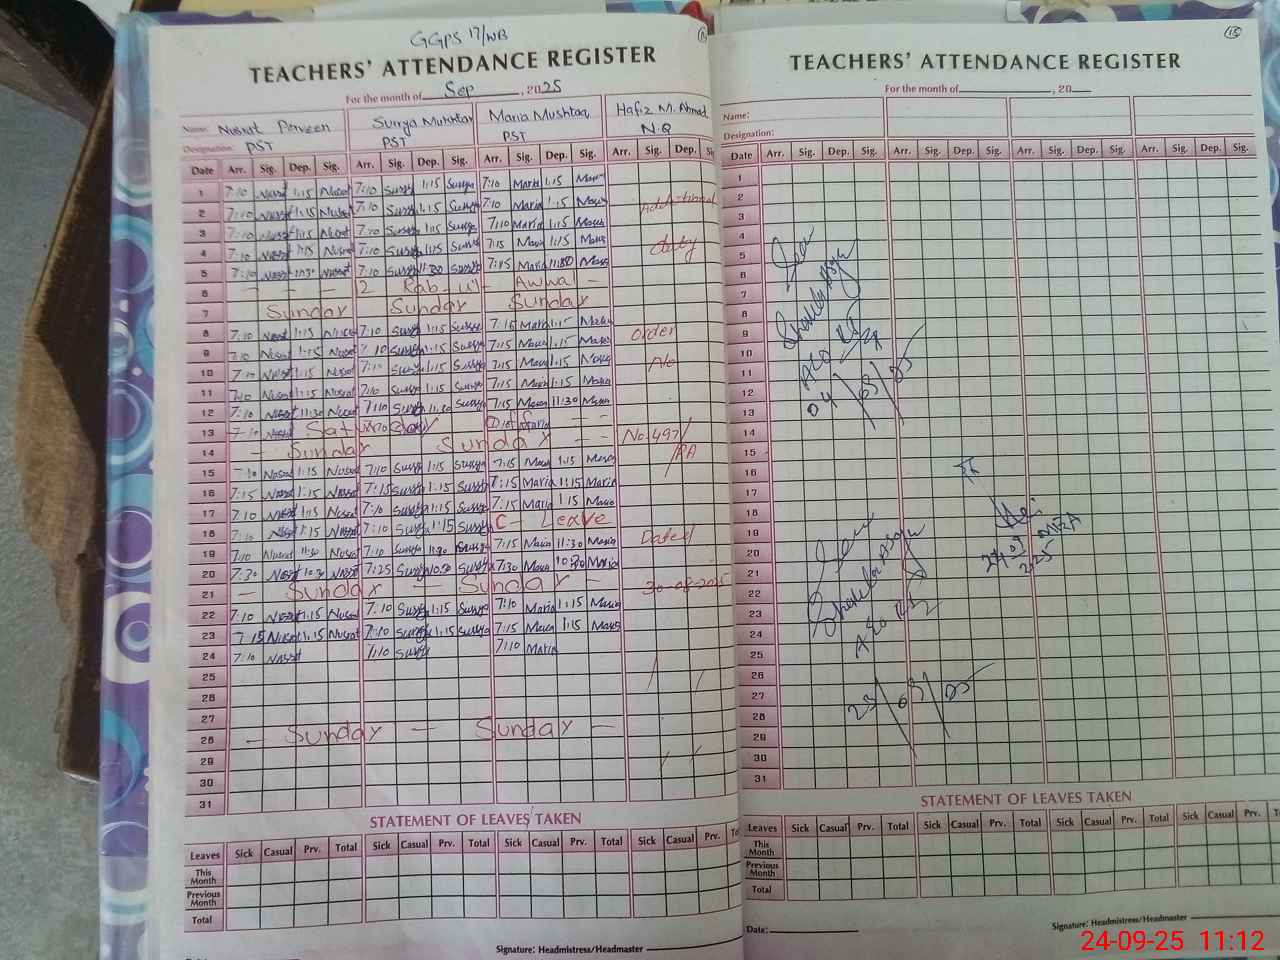 GGPS 17/WB
TEACHERS' ATTENDANCE REGISTER
For the month of Sep, 2025
Name: Nusrat Perveen Surrya Mukhtar Maria Mushtaq Hafiz M. Ahmad
Designation: PST PST PST N.Q
Date Arr. Sig. Dep. Sig. Arr. Sig. Dep. Sig. Arr. Sig. Dep. Sig. Arr. Sig. Dep.
1 7:10 Nusrat 1:15 Nusrat 7:10 Surrya 1:15 Surrya 7:10 Maria 1:15 Maria
2 7:10 Nusrat 1:15 Nusrat 7:10 Surrya 1:15 Surrya 7:10 Maria 1:15 Maria Additional
3 7:10 Nusrat 1:15 Nusrat 7:10 Surrya 1:15 Surrya 7:10 Maria 1:15 Maria
4 7:10 Nusrat 1:15 Nusrat 7:10 Surrya 1:15 Surrya 7:15 Maria 1:15 Maria duty
5 7:10 Nusrat 11:30 Nusrat 7:10 Surrya 11:30 Surrya 7:15 Maria 11:30 Maria
6 - - - - 2 Rab-ul- Awwal -
7 Sunday Sunday Sunday
8 7:10 Nusrat 1:15 Nusrat 7:10 Surrya 1:15 Surrya 7:15 Maria 1:15 Maria Order
9 7:10 Nusrat 1:15 Nusrat 7:10 Surrya 1:15 Surrya 7:15 Maria 1:15 Maria
10 7:10 Nusrat 1:15 Nusrat 7:10 Surrya 1:15 Surrya 7:15 Maria 1:15 Maria
11 7:10 Nusrat 1:15 Nusrat 7:10 Surrya 1:15 Surrya 7:15 Maria 1:15 Maria
12 7:10 Nusrat 11:30 Nusrat 7:10 Surrya 11:30 Surrya 7:15 Maria 11:30 Maria
13 7:10 Nusrat Saturday Off - -
14 - Sunday Sunday - - No.497/
15 7:10 Nusrat 1:15 Nusrat 7:10 Surrya 1:15 Surrya 7:15 Maria 1:15 Maria PA
16 7:15 Nusrat 1:15 Nusrat 7:15 Surrya 1:15 Surrya 7:15 Maria 1:15 Maria
17 7:10 Nusrat 1:15 Nusrat 7:10 Surrya 1:15 Surrya 7:15 Maria 1:15 Maria
18 7:10 Nusrat 1:15 Nusrat 7:10 Surrya 1:15 Surrya C- Leave
19 7:10 Nusrat 11:30 Nusrat 7:10 Surrya 11:30 Surrya 7:15 Maria 11:30 Maria Dated
20 7:30 Nusrat 10:30 Nusrat 7:25 Surrya 10:30 Surrya 7:30 Maria 10:30 Maria
21 - Sunday - Sunday - 30-08-2025
22 7:10 Nusrat 1:15 Nusrat 7:10 Surrya 1:15 Surrya 7:10 Maria 1:15 Maria
23 7:15 Nusrat 1:15 Nusrat 7:10 Surrya 1:15 Surrya 7:15 Maria 1:15 Maria
24 7:10 Nusrat 7:10 Surrya 7:10 Maria
25
26
27
28 - Sunday - Sunday -
29
30
31
STATEMENT OF LEAVES TAKEN
Leaves Sick Casual Prv. Total Sick Casual Prv. Total Sick Casual Prv. Total Sick Casual Prv.
This Month
Previous Month
Total
Signature: Headmistress/Headmaster
15
TEACHERS' ATTENDANCE REGISTER
For the month of , 20
Name:
Designation:
Date Arr. Sig. Dep. Sig. Arr. Sig. Dep. Sig. Arr. Sig. Dep. Sig. Arr. Sig. Dep. Sig.
1
2
3
4
5
6
7
8
9
10
11
12
13
14
15
16
17
18
19
20
21
22
23
24
25
26
27
28
29
30
31
Seen
04/09/25
24.09.225
MEA
Seen
23/09/25
STATEMENT OF LEAVES TAKEN
Leaves Sick Casual Prv. Total Sick Casual Prv. Total Sick Casual Prv. Total Sick Casual Prv. Total
This Month
Previous Month
Total
Date:
Signature: Headmistress/Headmaster
24-09-25 11:12